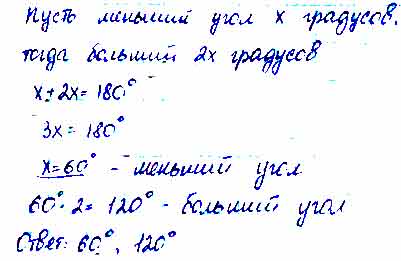 Пусть меньший угол x градусов.
тогда больший 2x градусов
x+2x=180°
3x=180°
x=60° - меньший угол
60°·2=120° - больший угол
Ответ: 60°, 120°